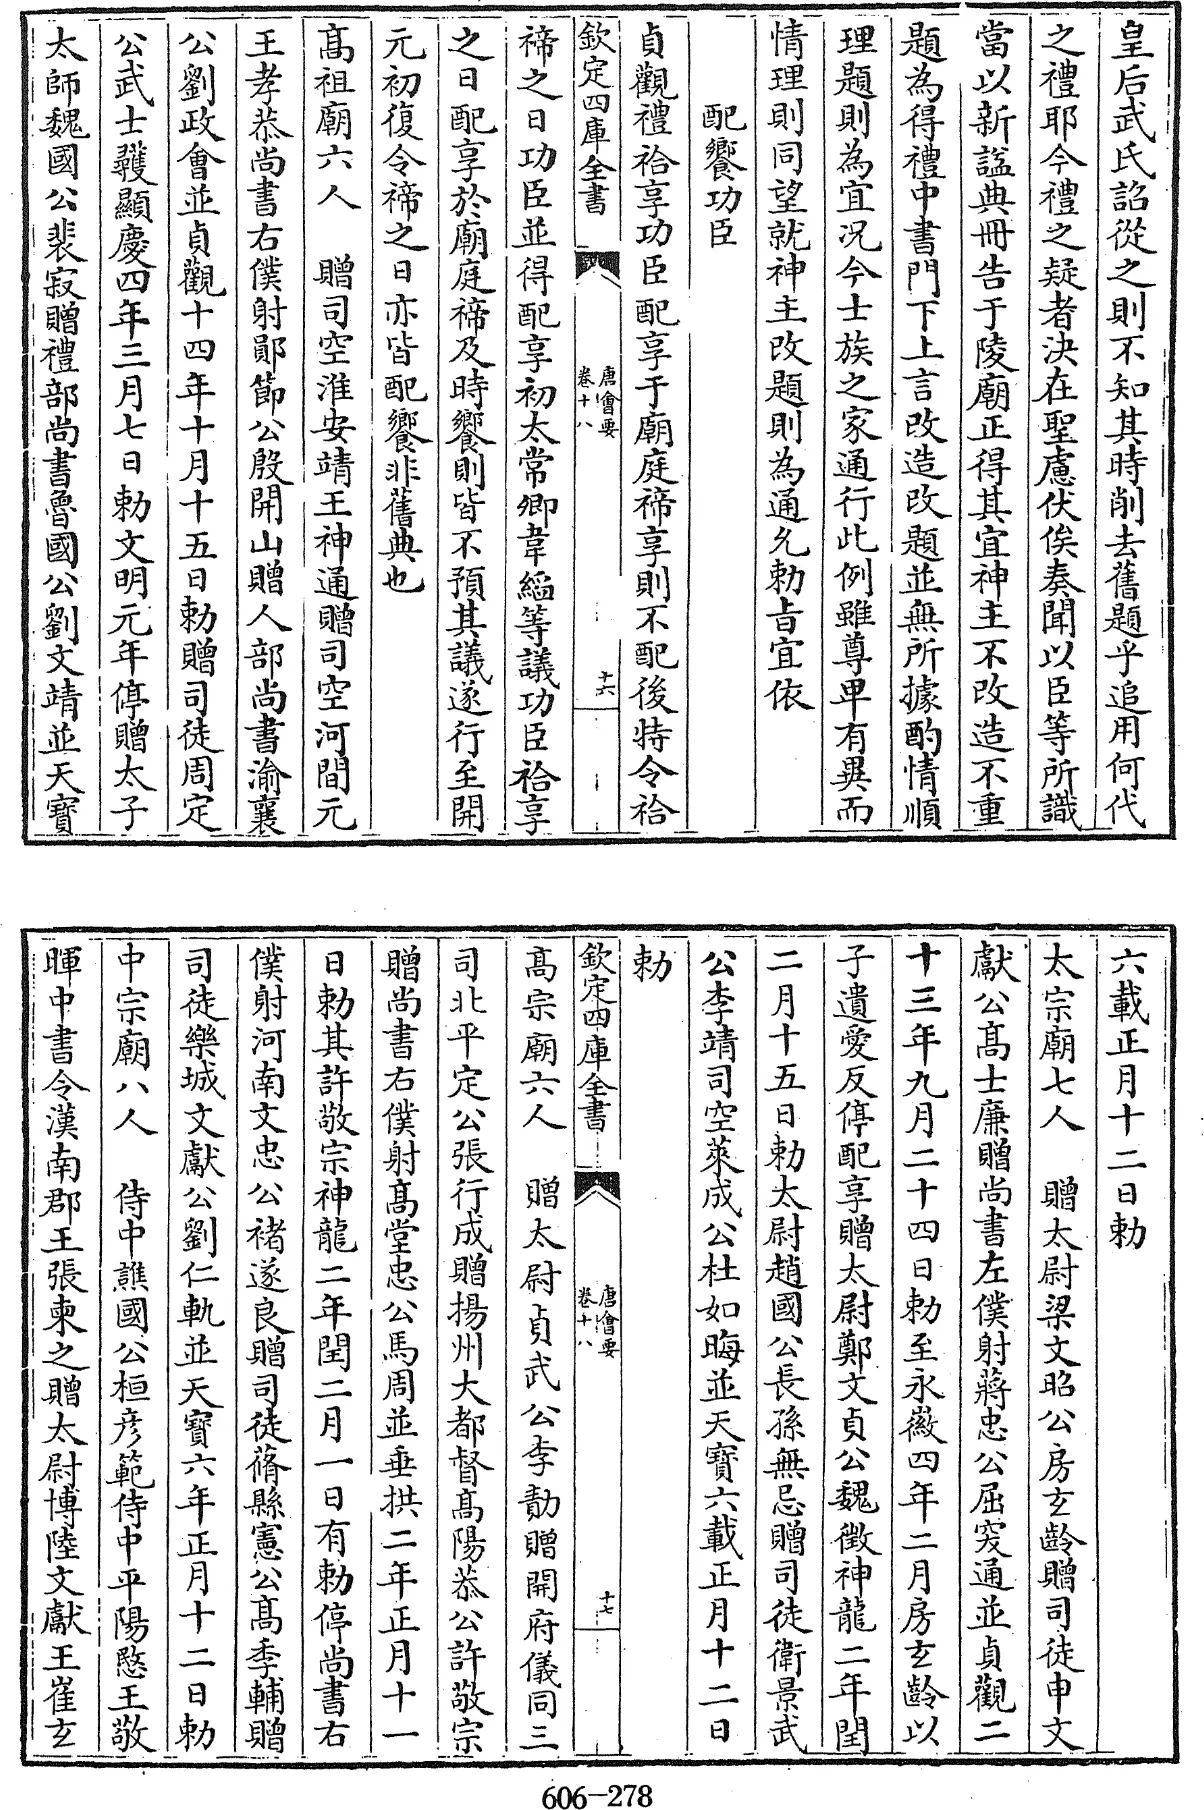 皇后武氏詔從之則不知其時削去舊題乎追用何代
之禮耶今禮之疑者決在聖慮伏俟奏聞以臣等所識
當以新諡典冊告于陵廟正得其宜神主不改造不重
題為得禮中書門下上言改造改題並無所據酌情順
理題則為宜况今士族之家通行此例雖尊卑有異而
情理則同望就神主改題則為通允勅旨宜依
配饗功臣
貞觀禮祫享功臣配享于廟庭禘享則不配後特令祫
欽定四庫全書
唐會要
卷十八
十六
禘之日功臣並得配享初太常卿韋縚等議功臣祫享
之日配享於廟庭禘及時饗則皆不預其議遂行至開
元初復令禘之日亦皆配饗非舊典也
髙祖廟六人 贈司空淮安靖王神通贈司空河間元
王孝恭尚書右僕射鄖節公殷開山贈人部尚書渝襄
公劉政會並貞觀十四年十月十五日勅贈司徒周定
公武士彠顯慶四年三月七日勅文明元年停贈太子
太師魏國公裴寂贈禮部尚書魯國公劉文靖並天寳
六載正月十二日勅
太宗廟七人 贈太尉梁文昭公房玄齡贈司徒申文
獻公髙士廉贈尚書左僕射蔣忠公屈突通並貞觀二
十三年九月二十四日勅至永徽四年二月房玄齡以
子遺愛反停配享贈太尉鄭文貞公魏徵神龍二年閏
二月十五日勅太尉趙國公長孫無忌贈司徒衛景武
公李靖司空萊成公杜如晦並天寳六載正月十二日
勅
欽定四庫全書
唐會要
卷十八
十七
髙宗廟六人 贈太尉貞武公李勣贈開府儀同三
司北平定公張行成贈揚州大都督髙陽恭公許敬宗
贈尚書右僕射髙堂忠公馬周並垂拱二年正月十一
日勅其許敬宗神龍二年閏二月一日有勅停尚書右
僕射河南文忠公褚遂良贈司徒蓨縣憲公髙季輔贈
司徒樂城文獻公劉仁軌並天寳六年正月十二日勅
中宗廟八人 侍中譙國公桓彦範侍中平陽愍王敬
暉中書令漢南郡王張柬之贈太尉博陸文獻王崔玄
606-278